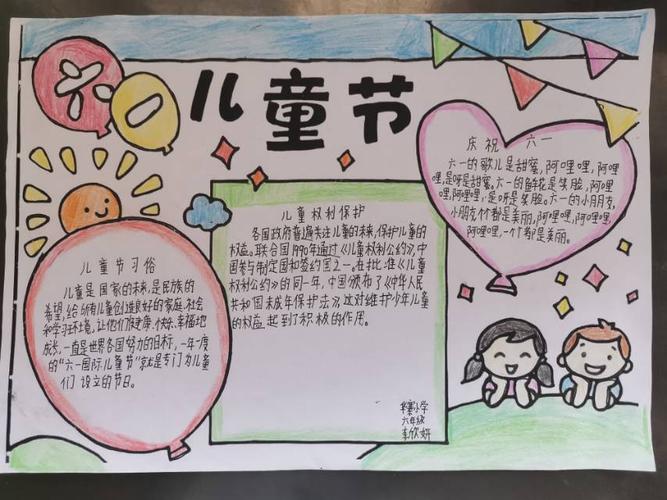 六一
儿童节
庆祝 六一
六一的歌儿是甜蜜,阿哩哩,阿哩
哩,是呀是甜蜜。六一的鲜花是笑脸,阿哩
哩,阿哩哩,是呀是笑脸。六一的小朋友,
小朋友个个都是美丽,阿哩哩,阿哩哩,
阿哩哩,一个个都是美丽。
儿童权利保护
各国政府普遍关注儿童的未来,保护儿童的
权益。联合国1990年通过《儿童权利公约》,中
国参与制定国和签约国之一。在批准《儿童
权利公约》的同一年,中国颁布了《中华人民
共和国未成年保护法》,这对维护少年儿童
的权益起到了积极的作用。
儿童节习俗
儿童是国家的未来,是民族的
希望,给所有儿童创造良好的家庭、社会
和学习环境,让他们健康、快乐、幸福地
成长,一直是世界各国努力的目标,一年一度
的“六一国际儿童节”就是专门为儿童
们设立的节日。
小学
六年级